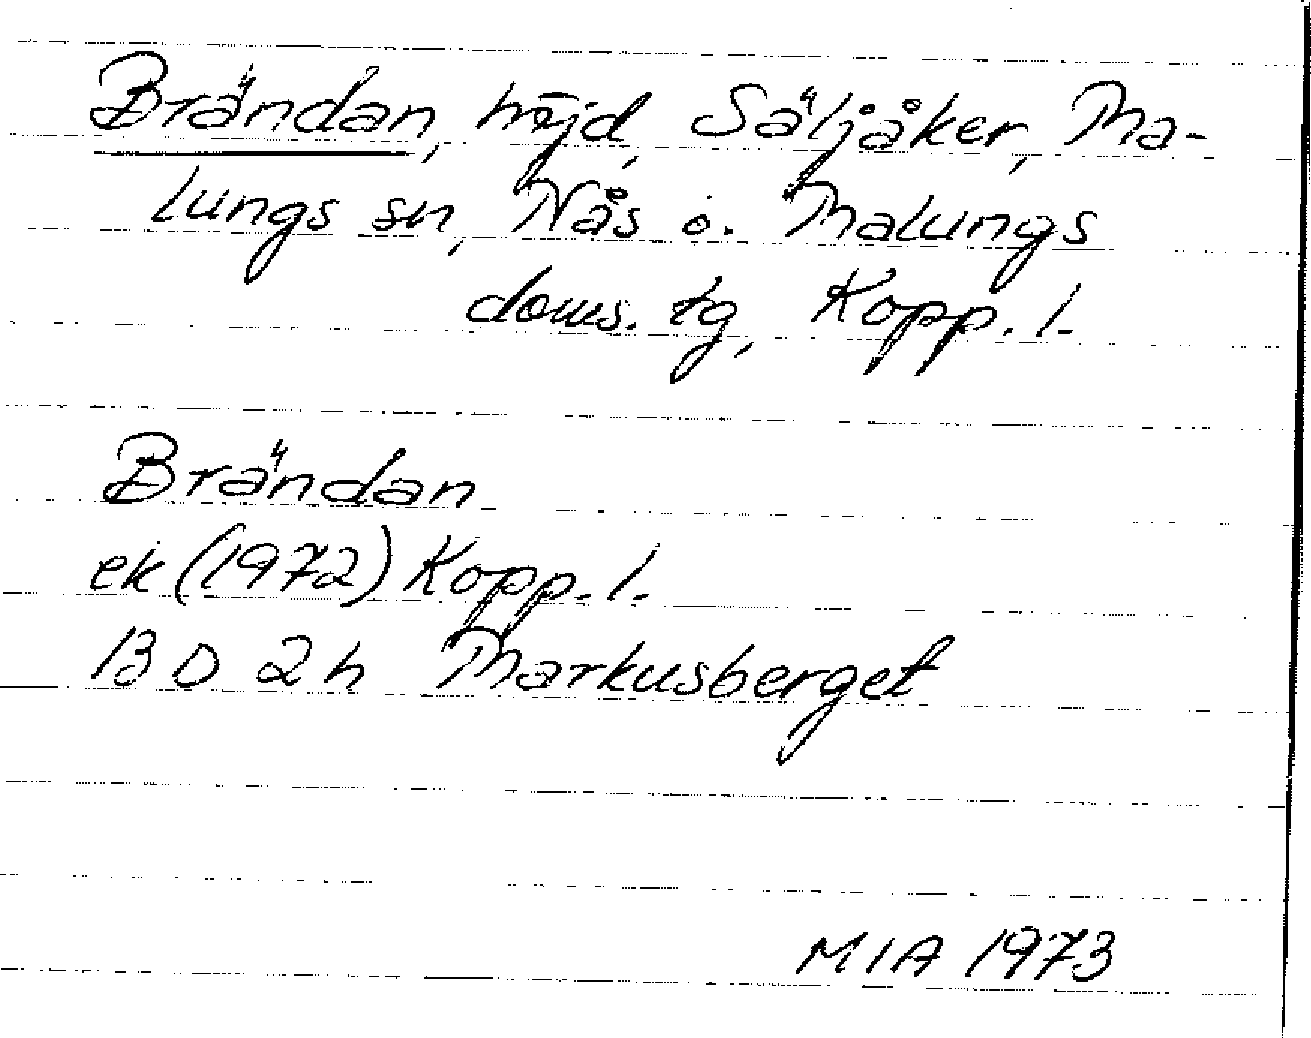 Brändan, höjd, Säljåker, Ma-
lungs sn, Nås o. Malungs
doms. tg, Kopp. l.
Brändan
ek (1972) Kopp. l.
13 D 2h Markusberget
MIA 1973